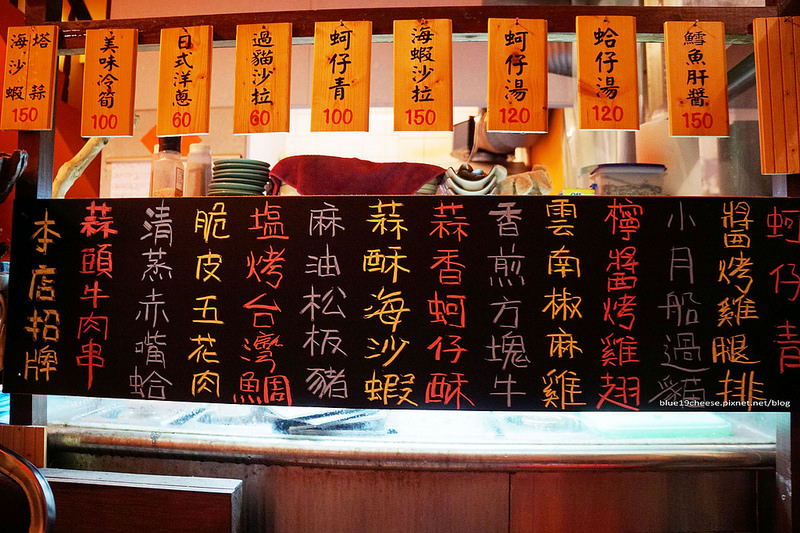 塔蒜
海沙蝦
150
美味冷筍
100
日式洋蔥
60
過貓沙拉
60
蚵仔青
100
海蝦沙拉
150
蚵仔湯
120
蛤仔湯
120
鱈魚肝醬
150
本店招牌
蒜頭牛肉串
清蒸赤嘴蛤
脆皮五花肉
塩烤台灣鯛
麻油松板豬
蒜酥海沙蝦
蒜香蚵仔酥
香煎方塊牛
雲南椒麻雞
檸醬烤雞翅
小月船過貓
醬烤雞腿排
蚵仔青
blue19cheese.pixnet.net/blog